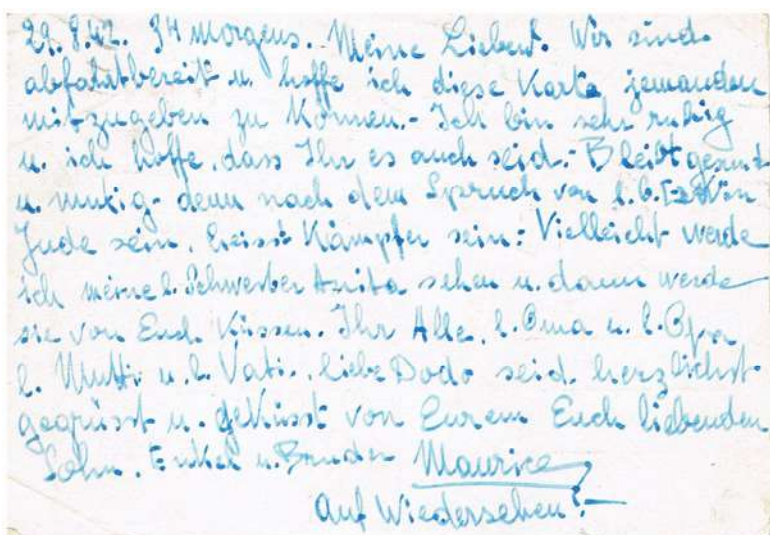 29.8.42. 3H morgens. Meine Lieben! Wir sind
abfahrtbereit u. hoffe ich diese Karte jemanden
mitzugeben zu können.- Ich bin sehr ruhig
u. ich hoffe, dass Ihr es auch seid.- Bleibt gesund
u. mutig- denn nach dem Spruch von
Jude sein, heisst Kämpfer sein: Vielleicht werde
ich meine l. Schwester Anita sehen u. dann werde
sie von Euch küssen. Ihr Alle, l. Oma u. l. Opa
l. Mutti u. l. Vati, liebe Dodo seid herzlichst
gegrüsst u. geküsst von Eurem Euch liebenden
Sohn, Enkel u. Bruder Maurice
Auf Wiedersehen!-